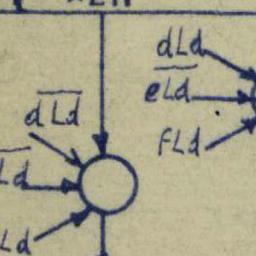 dLd
eL̅d̅
fLd
dL̅d̅
Ld